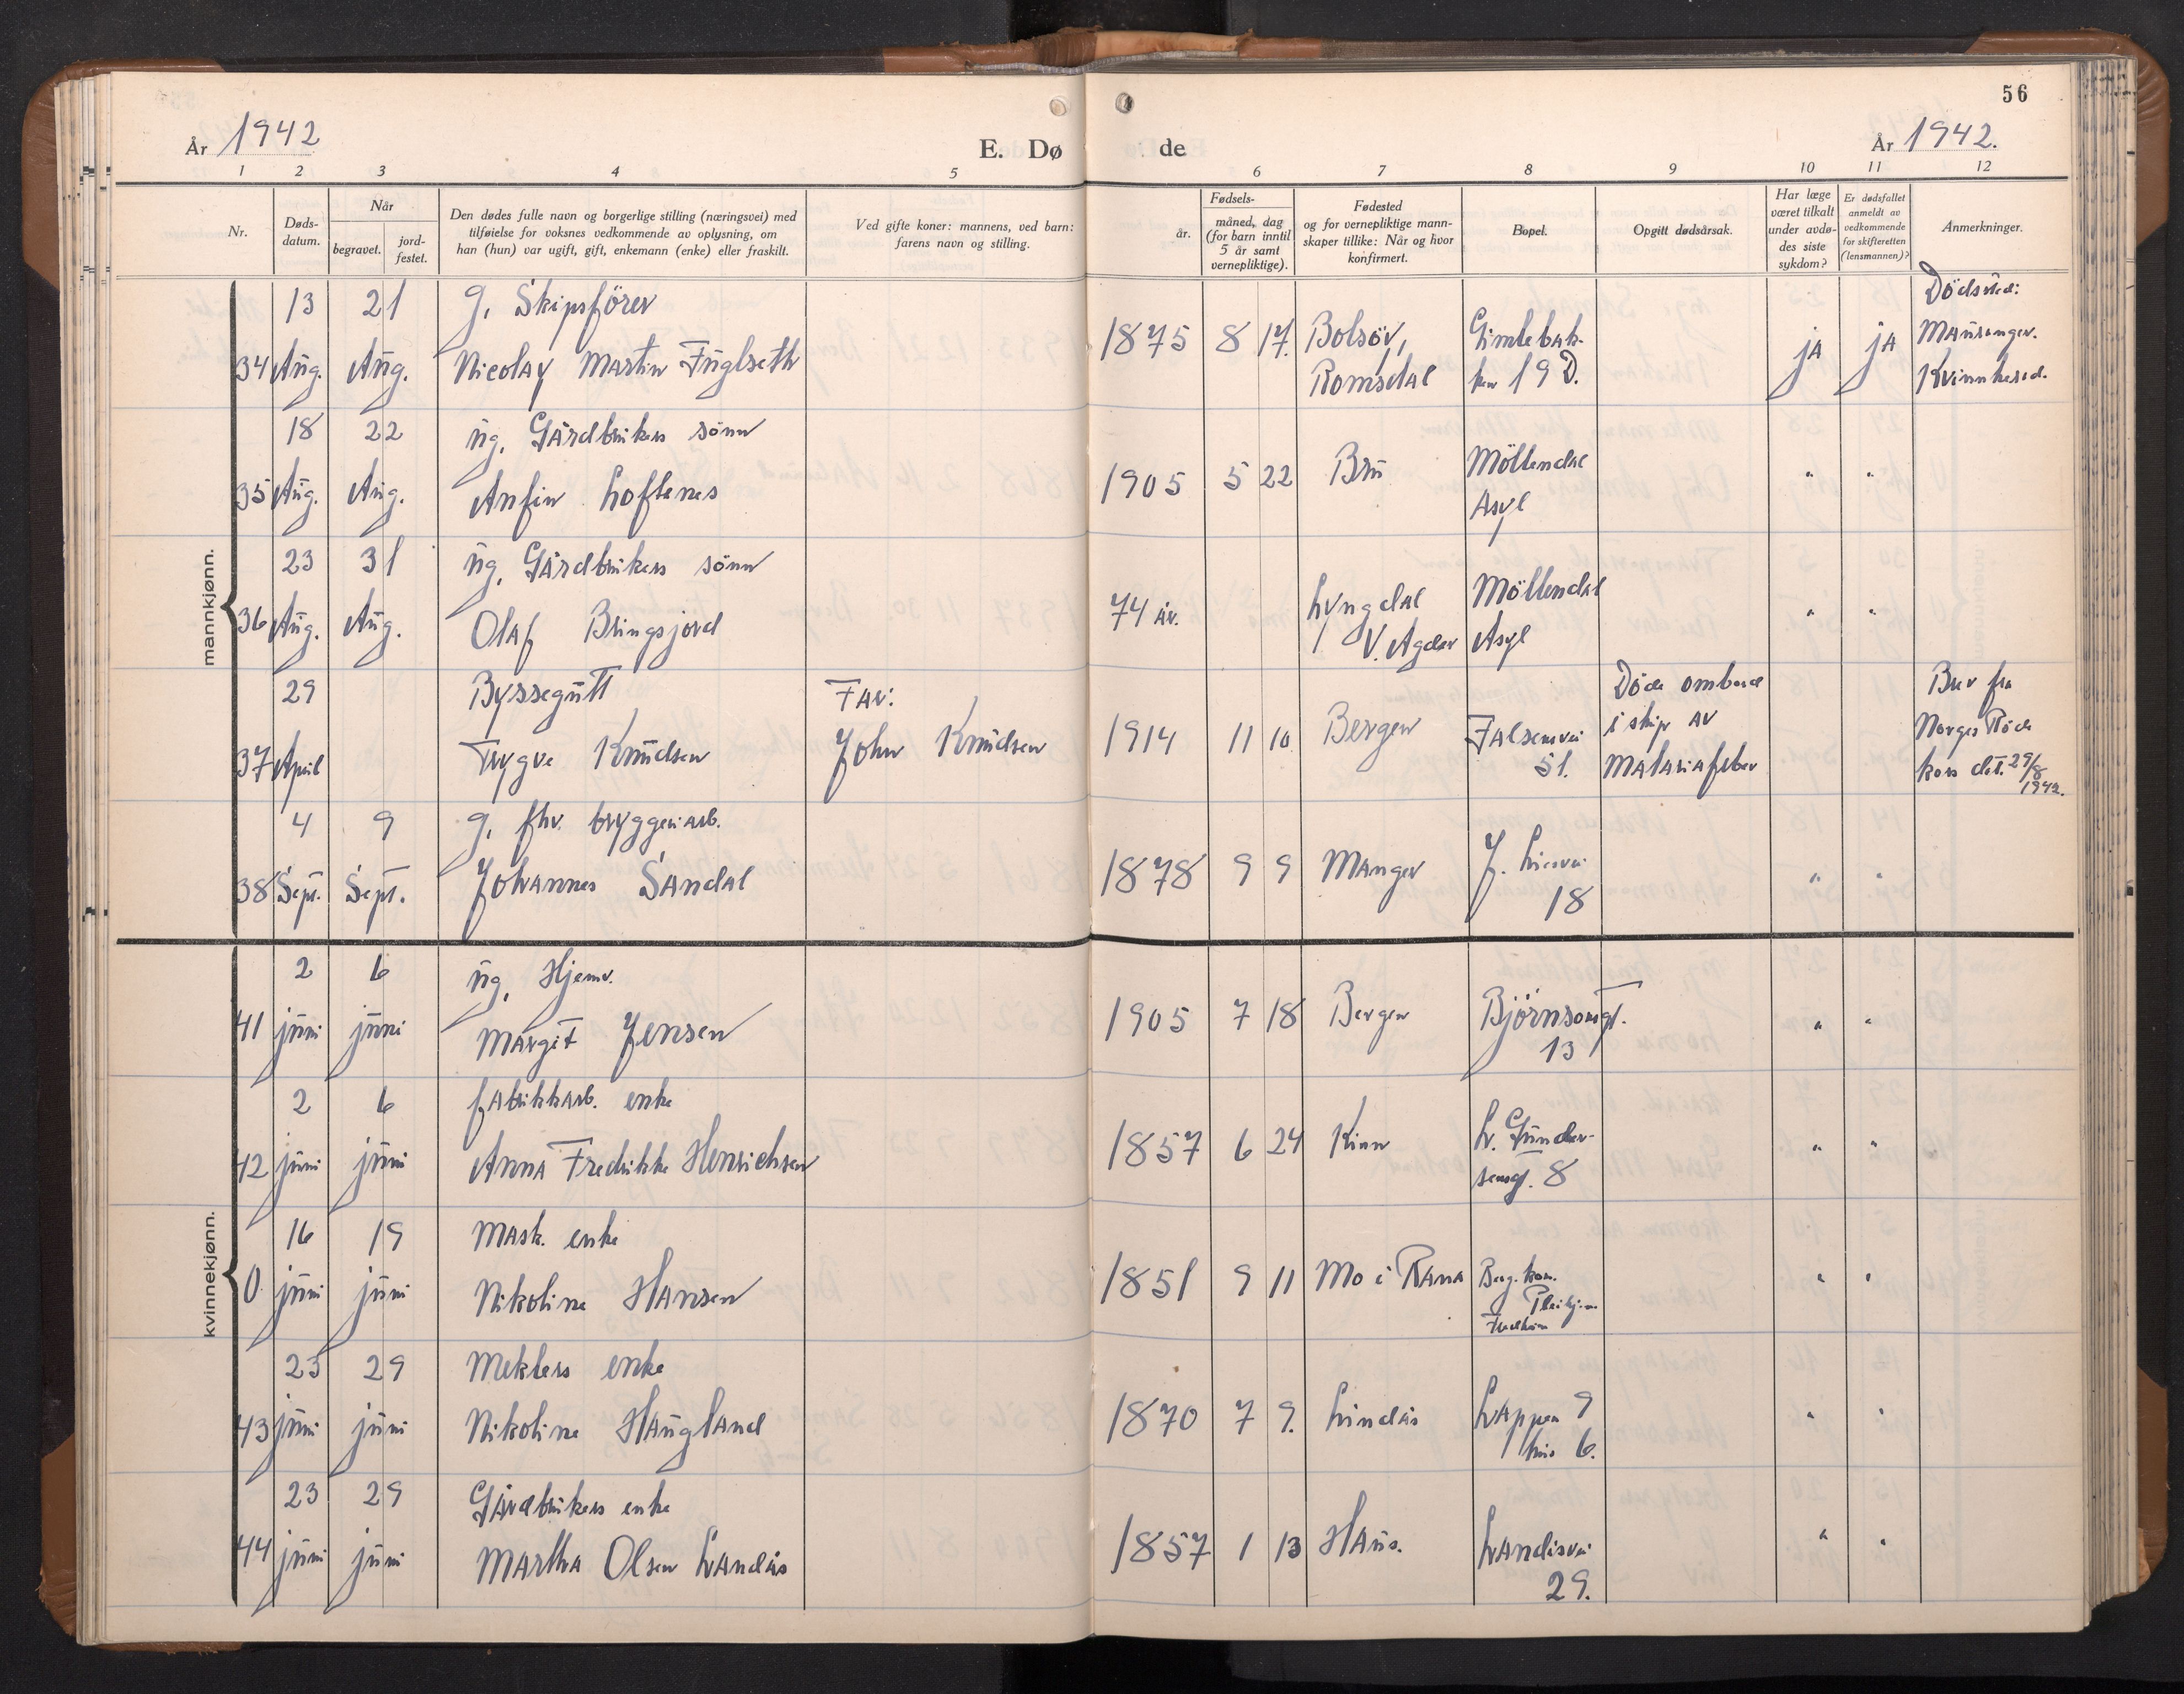 56
År 1942
E. Dø
de
År 1942.
1 2 3 4 5 6 7 8 9 10 11 12
Nr.
Døds-
datum.
Når
begravet.
jord-
festet.
Den dødes fulle navn og borgerlige stilling (næringsvei) med
tilføielse for voksnes vedkommende av oplysning, om
han (hun) var ugift, gift, enkemann (enke) eller fraskilt.
Ved gifte koner: mannens, ved barn:
farens navn og stilling.
Fødsels-
år.
måned, dag
(for barn inntil
5 år samt
vernepliktige).
Fødested
og for vernepliktige mann-
skaper tillike: Når og hvor
konfirmert.
Bopel.
Opgitt dødsårsak.
Har læge
været tilkalt
under avdø-
des siste
sykdom?
Er dødsfallet
anmeldt av
vedkommende
for skifteretten
(lensmannen)?
Anmerkninger.
mannkjønn.
13 21 g. Skipsförer
34 Aug. Aug. Nicolay Martin Fuglseth
1875 8 17. Bolsöy,
Romsdal
Gimlebak-
ken 19 D.
ja ja
Dödssted:
Mauranger.
Kvinnherad.
18 22 ug. Gårdbrukers sönn
35 Aug. Aug. Anfin Loftenes
1905 5 22 Bru
Möllendal
Asyl
" "
23 31 ug. Gårdbrukers sönn
36 Aug. Aug. Olaf Bringsjord
74 år.
Lyngdal
V. Agder
Möllendal
Asyl
" "
29 Byssegutt
37 April Trygve Knudsen
Far:
John Knudsen
1914 11 10 Bergen
51.
Döde ombord
i skip av
Malariafeber
Brev fra
Norges Röde
kors dat. 29/8
1942.
4 9 g. fhv. bryggeriarb.
38 Sept. Sept. Johannes Sandal
1878 9 9 Manger
J. Liesvei
18
" "
kvinnekjønn.
2 6 ug. Hjemv.
41 juni juni Margit Jensen
1905 7 18 Bergen
Björnsonsgt.
13
" "
2 6 fabrikkarb. enke
42 juni juni Anna Fredrikke Henrichsen
1857 6 24 Kinn
L. Gunder-
sensgt. 8
" "
16 19 Mask. enke
0 juni juni Nikoline Hansen
1851 9 11 Mo i Rana
Berg. kom.
Pleiehjem
" "
23 29 Meklers enke
43 juni juni Nikoline Haugland
1870 7 9. Lindås
Lappen 9
hus 6.
" "
23 29 Gårdbrukers enke
44 juni juni Martha Olsen Landås
1857 1 13 Haus.
Landåsvei
29.
" "